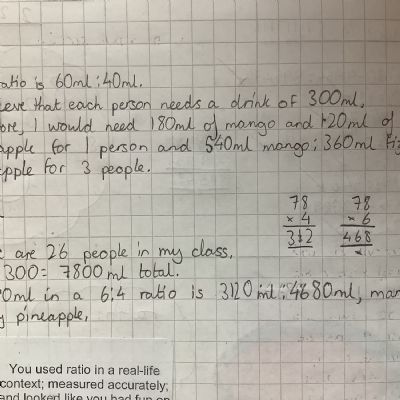 atio is 60ml : 40ml.
eve that each person needs a drink of 300ml,
ore, I would need 180ml of mango and 120ml of
apple for 1 person and 540ml mango : 360ml fiz
pple for 3 people.
78 78
× 4 × 6
312 468
are 26 people in my class,
300 = 7800ml total.
0ml in a 6:4 ratio is 3120ml : 4680ml, man
y pineapple,
You used ratio in a real-life
context; measured accurately;
and looked like you had fun on